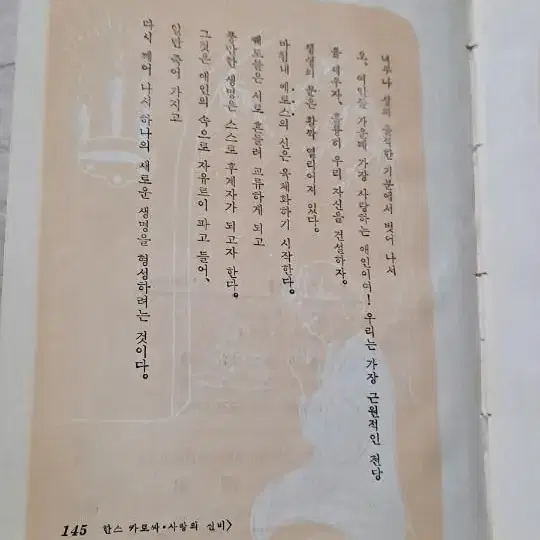 너무나 성의 울적한 기분에서 벗어 나서
오, 여인들 가운데 가장 사랑하는 애인이여! 우리는 가장 근원적인 전당
을 세우자, 훌륭히 우리 자신을 건설하자.
문은 활짝 열리어져 있다.
마침내 에로스의 신은 육체화하기 시작한다.
궤도들은 서로 흔들려 교류하게 되고
풍만한 생명은 스스로 후계자가 되고자 한다.
그것은 애인의 속으로 자유로이 파고 들어,
일단 죽어 가지고
다시 깨어 나서 하나의 새로운 생명을 형성하려는 것이다.
145 한스 카로싸·사랑의 신비>